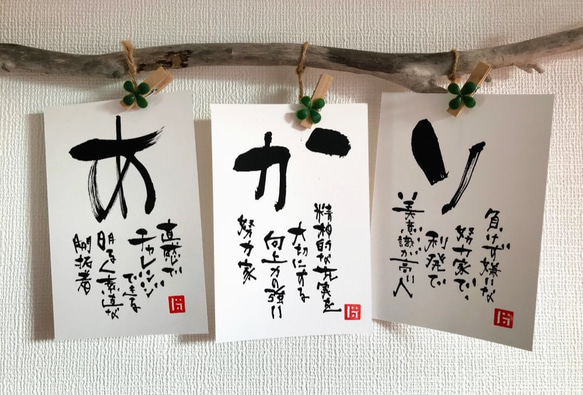 あ
直感で
チャレンジ
できる
明るく素直な
開拓者
か
精神的な充実を
大切にする
向上力の強い
努力家
り
負けず嫌いな
努力家で、
利発で
美意識が高い人